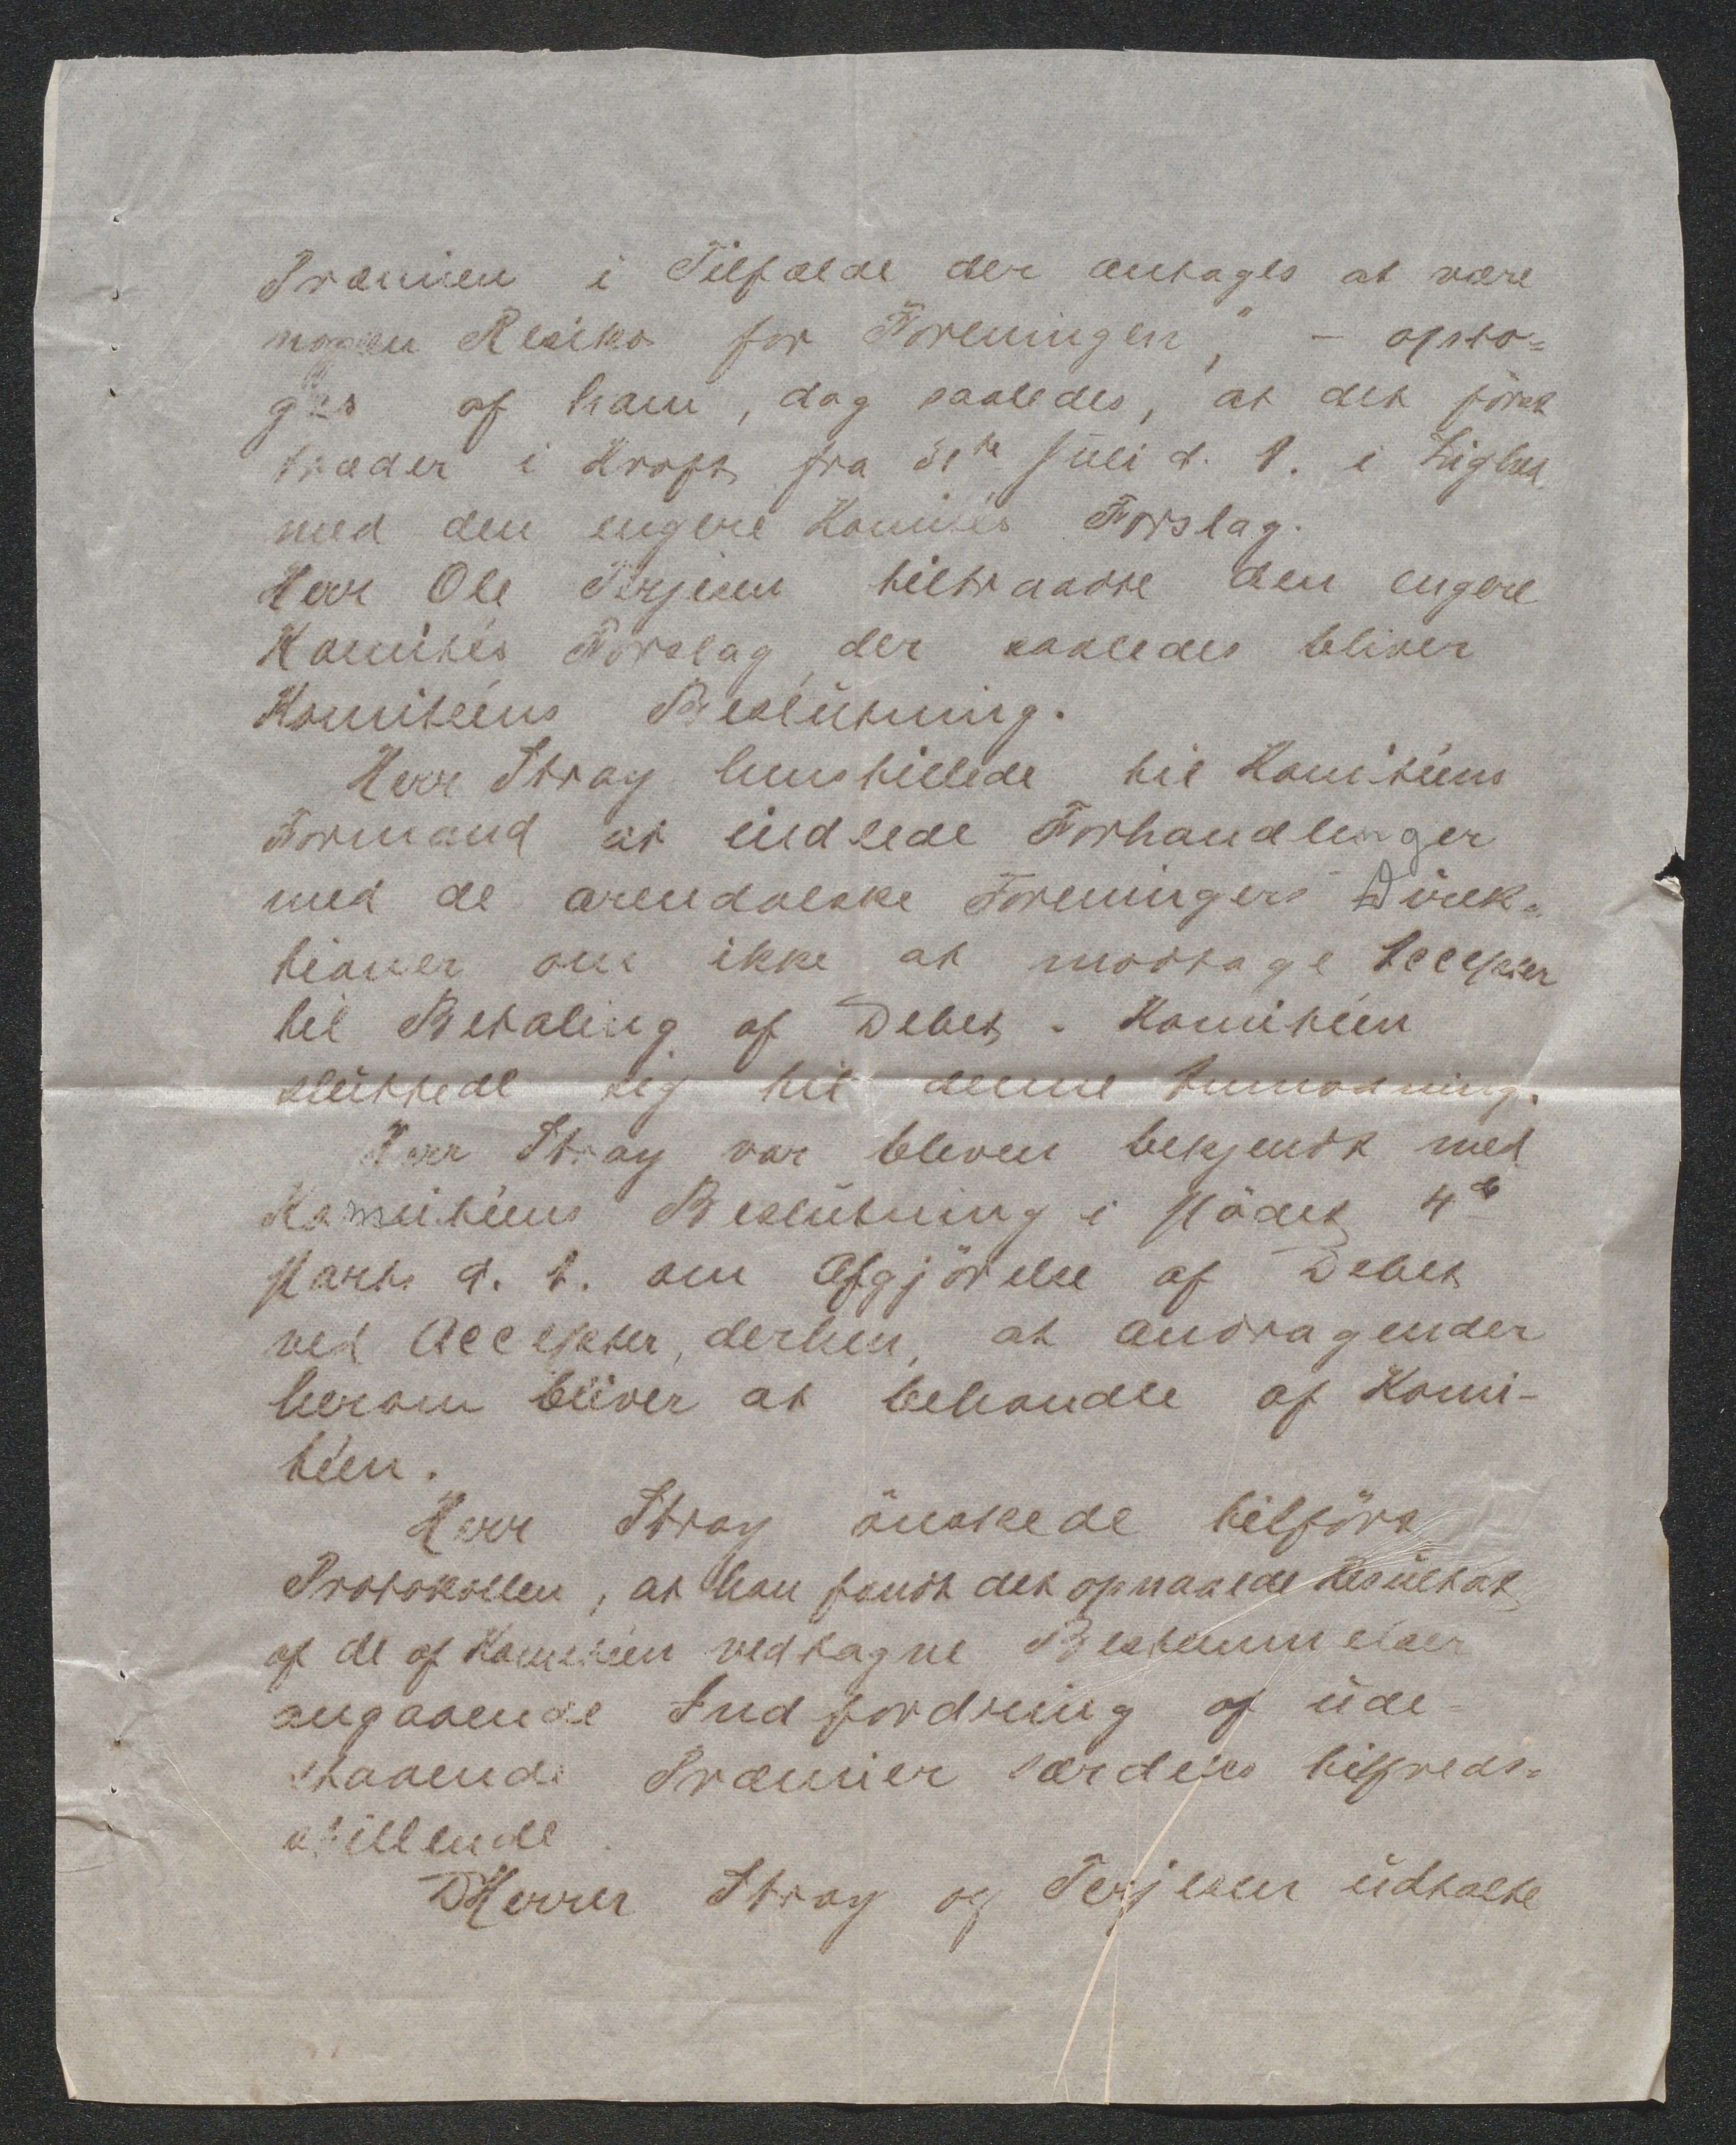 Præmien i Tilfælde der antages at være
nogen Risiko for Foreningen", – opto-
ges af ham, dog saaledes, at det först
træder i Kraft fra 31te Juli d. A. i Lighed
med den engere Komités Forslag.
Herr Ole Terjesen tiltraadte den engere
Komités Forslag, der saaledes bliver
Komitéens Beslutning.
Herr Stray henstillede til Komitéens
Formand at indlede Forhandlinger
med de arendalske Foreningers Direk-
tioner om ikke at modtage Accepter
til Betaling af Debet. Komitéen
sluttede sig til denne Anmodning.
Herr Stray var bleven bekjendt med
Komitéens Beslutning i Mödet 4de
Marts d. A. om Afgjörelse af Debet
ved Accepter, derhen, at Andragender
herom bliver at behandle af Komi-
téen.
Herr Stray önskede tilfört
Protokollen, at han fandt det opnaaede Resultat
af de af Komitéen vedtagne Bestemmelser
angaaende Indfordring af ude-
staaende Præmier særdeles tilfreds-
stillende.
DHerrer Stray og Terjesen udtalte